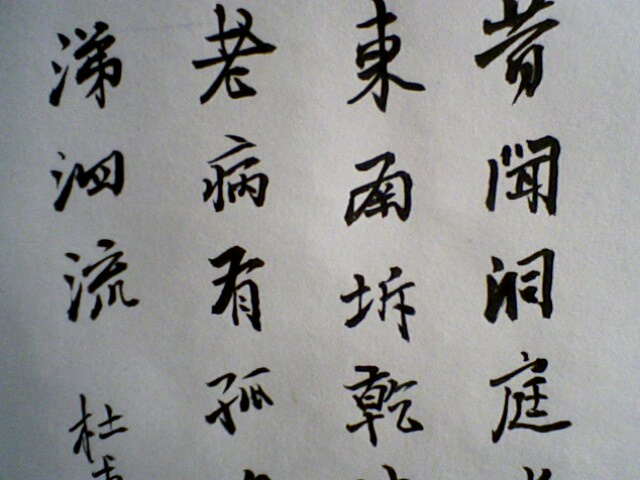 昔聞洞庭
東南坼乾
老病有孤
涕泗流
杜